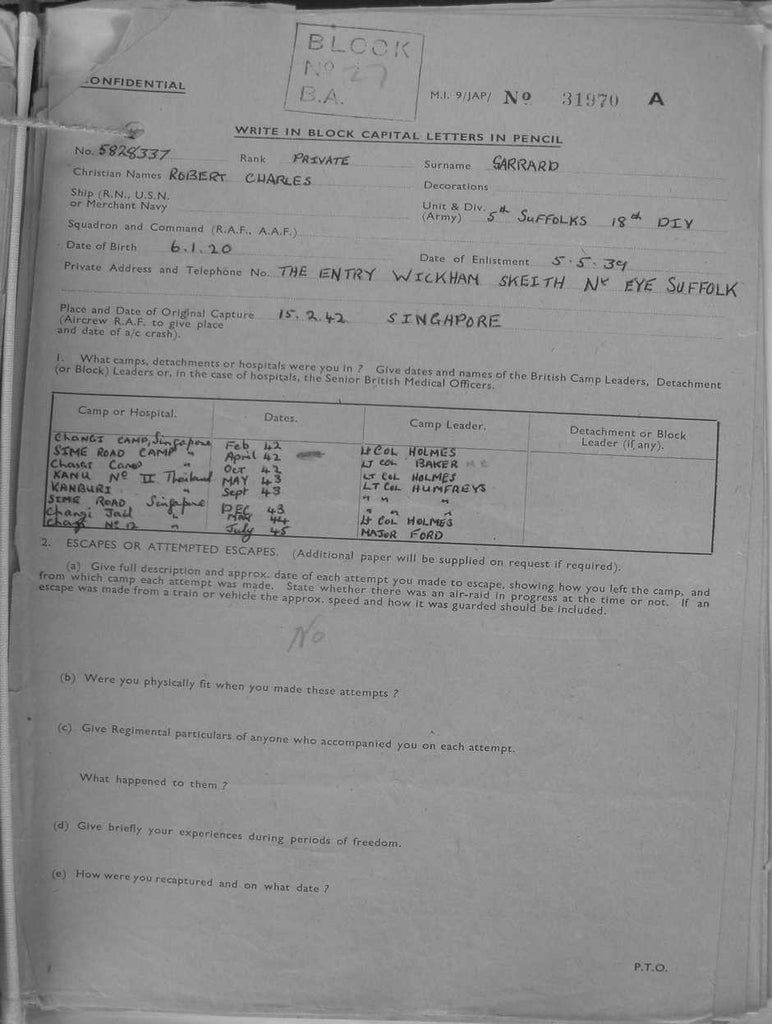 BLOCK
No 27
B.A.
CONFIDENTIAL
M.I. 9/JAP/ No 31970 A
WRITE IN BLOCK CAPITAL LETTERS IN PENCIL
No. 5828337 Rank PRIVATE Surname GARRARD
Christian Names ROBERT CHARLES Decorations
Ship (R.N., U.S.N. or Merchant Navy
Unit & Div. (Army) 5th SUFFOLKS 18th DIV
Squadron and Command (R.A.F., A.A.F.)
Date of Birth 6.1.20 Date of Enlistment 5.5.39
Private Address and Telephone No. THE ENTRY WICKHAM SKEITH Nr EYE SUFFOLK
Place and Date of Original Capture 15.2.42 SINGAPORE
(Aircrew R.A.F. to give place
and date of a/c crash).
1. What camps, detachments or hospitals were you in ? Give dates and names of the British Camp Leaders, Detachment
(or Block) Leaders or, in the case of hospitals, the Senior British Medical Officers.
Camp or Hospital. Dates. Camp Leader. Detachment or Block Leader (if any).
CHANGI CAMP, Singapore Feb 42 Lt COL HOLMES
SIME ROAD CAMP " April 42 LT COL BAKER
" Oct 42 LT COL HOLMES
KANU No II Thailand MAY 43 LT COL HUMFREYS
KANBURI " Sept 43 " " "
SIME ROAD Singapore DEC 43 " " "
Changi Jail " MAY 44 Lt COL HOLMES
No 12 " July 45 MAJOR FORD
2. ESCAPES OR ATTEMPTED ESCAPES. (Additional paper will be supplied on request if required).
(a) Give full description and approx. date of each attempt you made to escape, showing how you left the camp, and
from which camp each attempt was made. State whether there was an air-raid in progress at the time or not. If an
escape was made from a train or vehicle the approx. speed and how it was guarded should be included.
No
(b) Were you physically fit when you made these attempts ?
(c) Give Regimental particulars of anyone who accompanied you on each attempt.
What happened to them ?
(d) Give briefly your experiences during periods of freedom.
(e) How were you recaptured and on what date ?
P.T.O.